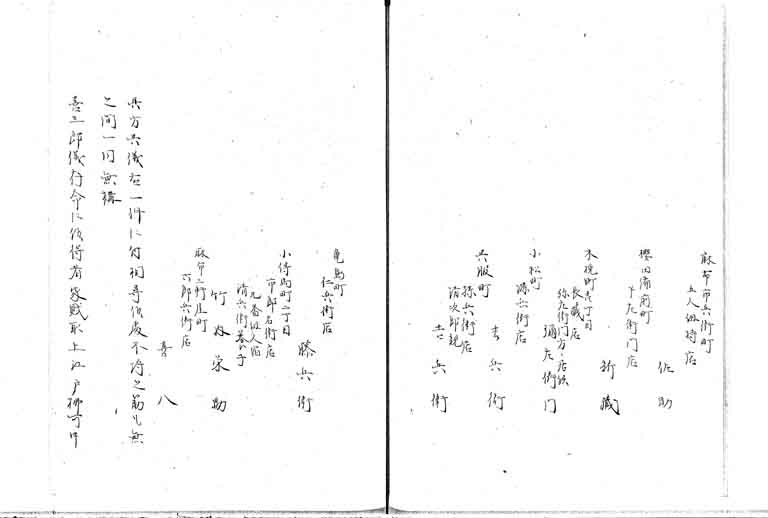 麻布市兵衛町
五人組持店
佐助
櫻田備前町
左衛門店
新蔵
木挽町七丁目
長蔵店
弥左衛門方ニ居候
彌左衛門
小松町
源兵衛店
吉兵衛
呉服町
弥兵衛店
清次郎親
吉兵衛
亀島町
仁兵衛店
藤兵衛
小傳馬町二丁目
市郎右衛門店
元番組人宿
清兵衛養子
竹内栄助
麻布三軒屋町
六郎兵衛店
喜八
其方共儀右一件ニ付相尋候処不埒之筋も無
之間一同無構
吾三郎儀存命ニ候得者家財取上江戸拂可申